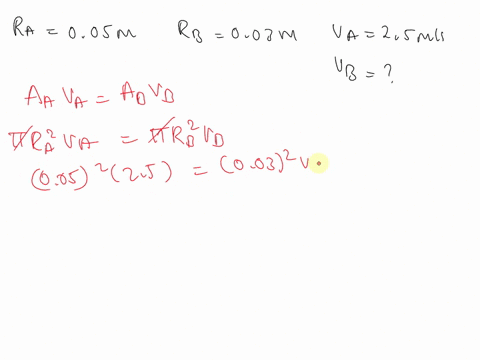 R_A = 0.05m R_B = 0.03m V_A = 2.5m/s
V_B = ?
A_A V_A = A_B V_B
πR_A² V_A = πR_B² V_B
(0.05)² (2.5) = (0.03)² V